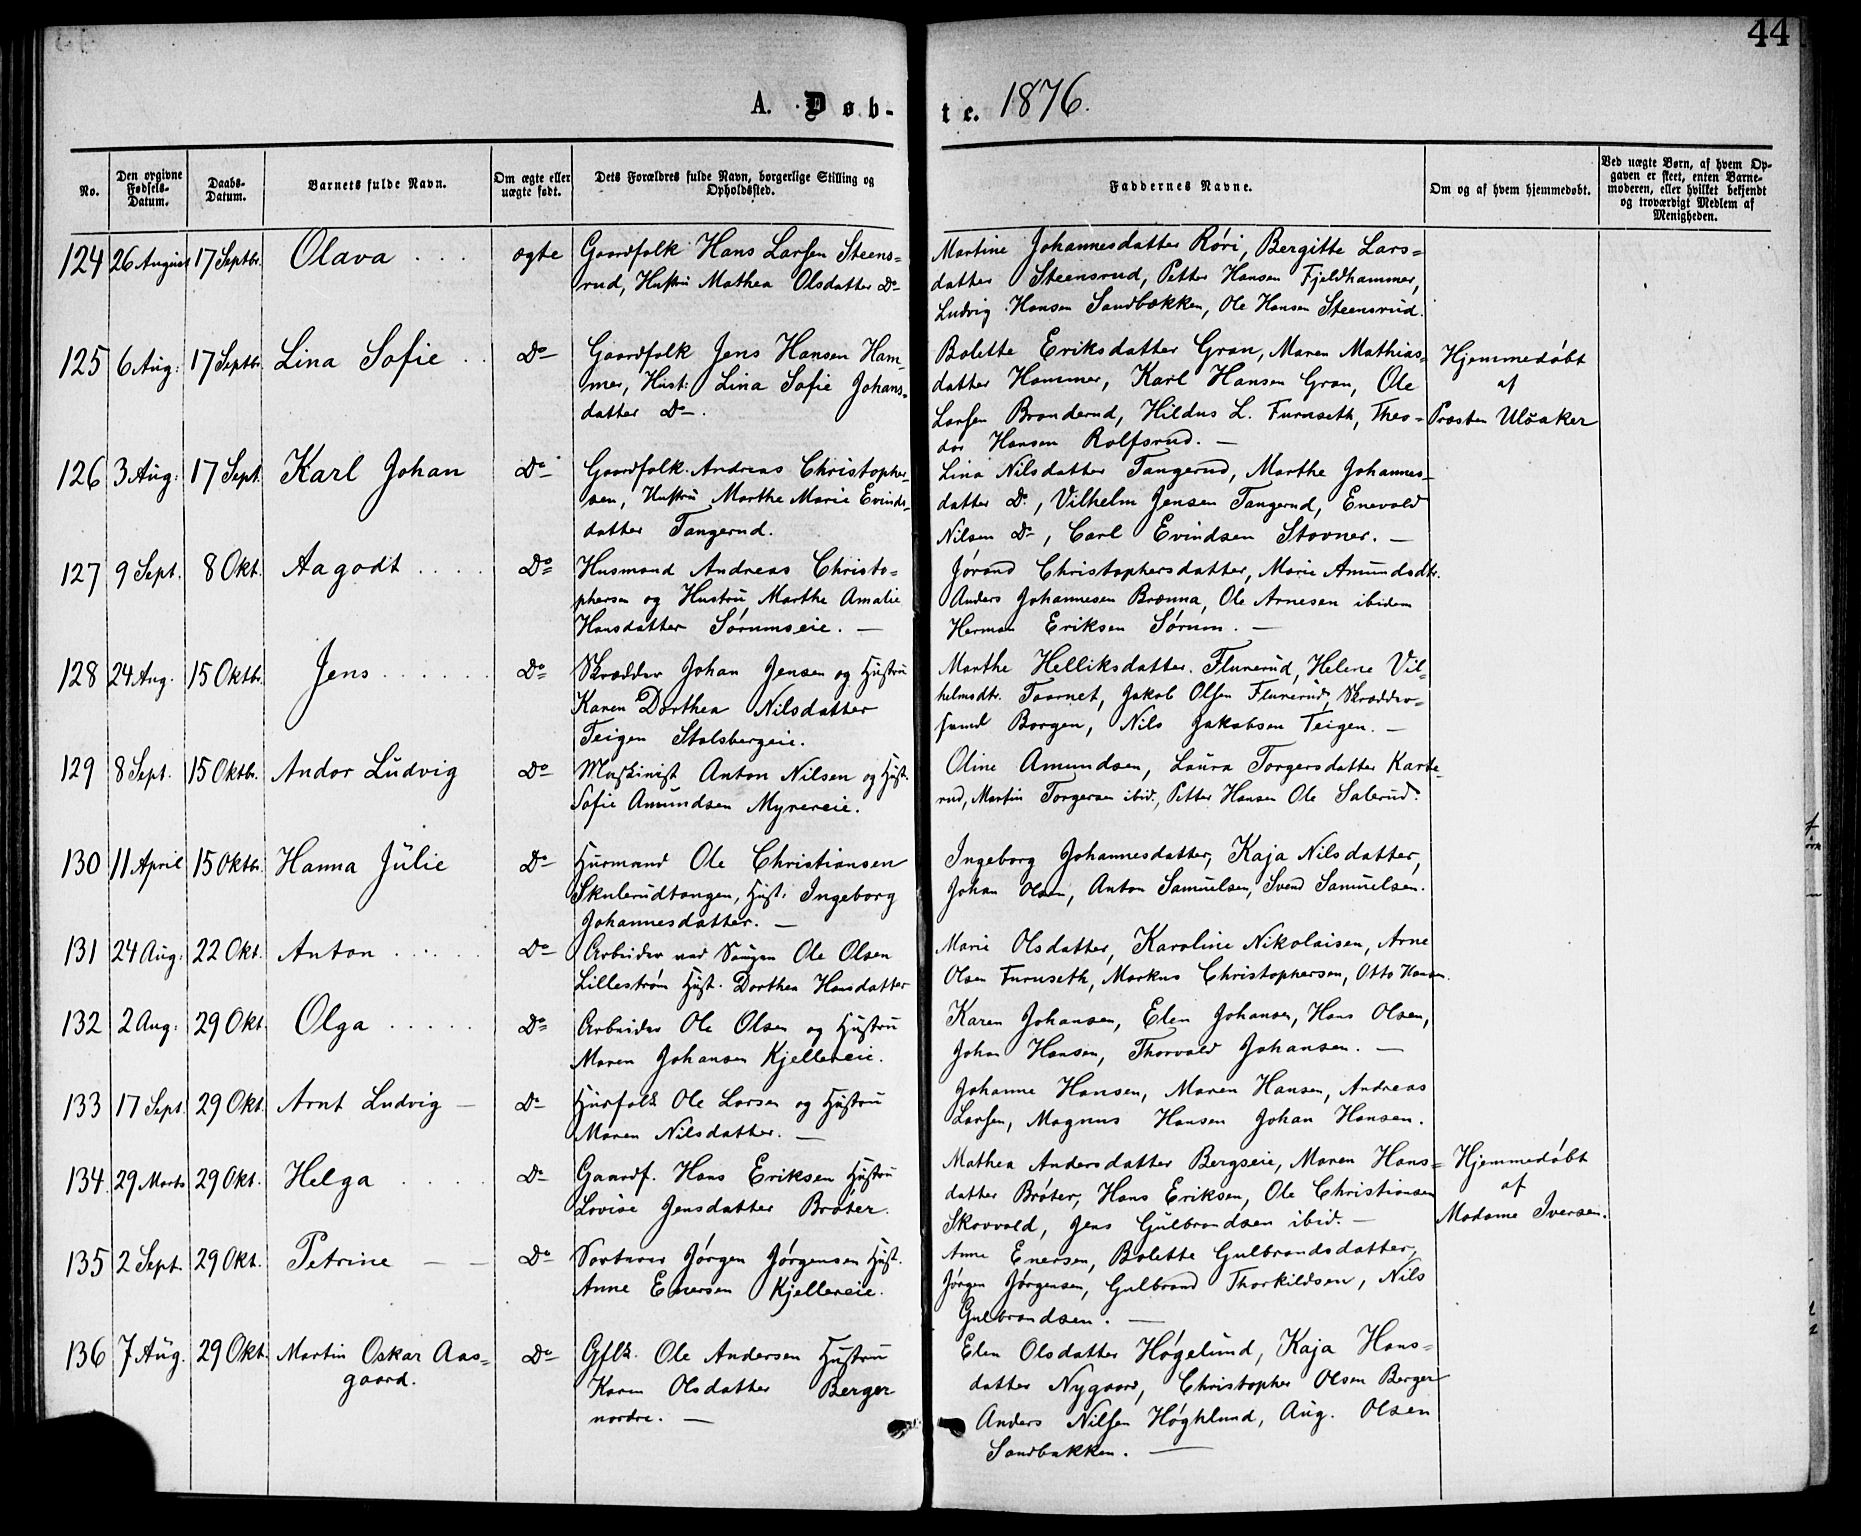 44
A. Døb-te. 1876.
No.
Den opgivne Fødsels-Datum.
Daabs-Datum.
Barnets fulde Navn.
Om ægte eller uægte født.
Dets Forældres fulde Navn, borgerlige Stilling og Opholdssted.
Faddernes Navne.
Om og af hvem hjemmedøbt.
Ved uægte Børn, af hvem Opgaven er skeet, enten Barnemoderen, eller hvilket bekjendt og troværdigt Medlem af Menigheden.
124 26 August 17 Septbr. Olava ... ægte
Gaardfolk Hans Larsen Steens=
rud, Hustru Mathea Olsdatter Do
Martine Johannesdatter Røri, Bergitte Lars=
datter Steensrud, Petter Hansen Fjeldhammer,
Ludvig Hansen Sandbækken, Ole Hansen Steensrud.
125 6 Aug: 17 Septbr. Lina Sofie .. Do
Gaardfolk Jens Hansen Ham-
mer, Hust: Lina Sofie Johans-
datter Do.
Bolette Eriksdatter Gran, Maren Mathias=
datter Hammer, Karl Hansen Gran, Ole
Larsen Branderud, Hildus L. Furuseth, Theo-
dor Hansen Rolfsrud. —
Hjemmedøbt
af
Præsten Ulsaker
126 3 Aug: 17 Sept. Karl Johan Do
Gaardfolk Andreas Christopher-
sen, Hustru Marthe Marie Evinds-
datter Tangerud.
Lina Nilsdatter Tangerud, Marthe Johannes-
datter Do, Vilhelm Jensen Tangerud, Enevold
Nilsen Do, Carl Evindsen Stovner. —
127 9 Sept. 8 Okt. Aagodt .... Do
Husmand Andreas Christo=
phersen og Hustru Marthe Amalie
Hansdatter Sørumseie. —
Jørand Christophersdatter, Marie Amundsdtr.
Anders Johannesen Brænna, Ole Arnesen ibidem
Herman Eriksen Sørum. —
128 24 Aug. 15 Oktbr. Jens ...... Do
Skrædder Johan Jensen og Hustru
Karen Dorthea Nilsdatter
Teigen Stalsbergeie.
Marthe Helliksdatter Flunerud, Helene Vil=
helmsdtr. Taarnet, Jakob Olsen Flunerud, Skrædder=
svend Borgen, Nils Jakobsen Teigen. —
129 8 Sept. 15 Oktbr. Andor Ludvig Do
Maskinist Anton Nilsen og Hust.
Sofie Amundsen Myrereie.
Oline Amundsen, Laura Torgersdatter Karte-
rud, Martin Torgersen ibid., Petter Hansen Ole Salerud.
130 11 April 15 Oktbr. Hanna Julie Do
Husmand Ole Christiansen
Skulerudtangen, Hust: Ingeborg
Johannesdatter. —
Ingeborg Johannesdatter, Kaja Nilsdatter,
Johan Olsen, Anton Samuelsen, Svend Samuelsen.
131 24 Aug: 22 Okt. Anton ..... Do
Arbeider ved Saugen Ole Olsen
Lillestrøm Hust. Dorthea Hansdatter
Marie Olsdatter, Karoline Nikolaisen, Arne
Olsen Furuseth, Markus Christophersen, Otto Hansen.
132 2 Aug: 29 Okt. Olga ..... Do
Arbeider Ole Olsen og Hustru
Maren Johansen Kjellereie.
Karen Johansen, Elen Johansen, Hans Olsen,
Johan Hansen, Thorvald Johansen. —
133 17 Sept. 29 Okt. Arnt Ludvig — Do
Husfolk Ole Larsen og Hustru
Maren Nilsdatter. —
Johanne Hansen, Maren Hansen, Andreas
Larsen, Magnus Hansen Johan Hansen.
134 29 Marts 29 Okt. Helga .... Do
Gaardf. Hans Eriksen Hustru
Lovise Jensdatter Brøter.
Mathea Andersdatter Bergseie, Maren Hans=
datter Brøter, Hans Eriksen, Ole Christiansen
Skovvold, Jens Gulbrandsen ibid. —
Hjemmedøbt
af
Madame Iversen.
135 2 Sept. 29 Okt. Petrine — — Do
Jørgen Jørgensen Hust.
Anne Enersen Kjellereie.
Anne Enersen, Bolette Gulbrandsdatter,
Jørgen Jørgensen, Gulbrand Thorkildsen, Nils
Gulbrandsen. —
136 7 Aug. 29 Okt. Martin Oskar Aas=
gaard. Do
Gflk. Ole Andersen Hustru
Karen Olsdatter Berger
nordre. —
Elen Olsdatter Høgelund, Kaja Hans-
datter Nygaard, Christopher Olsen Berger
Anders Nilsen Høghlund, Aug. Olsen
Sandbakken. —